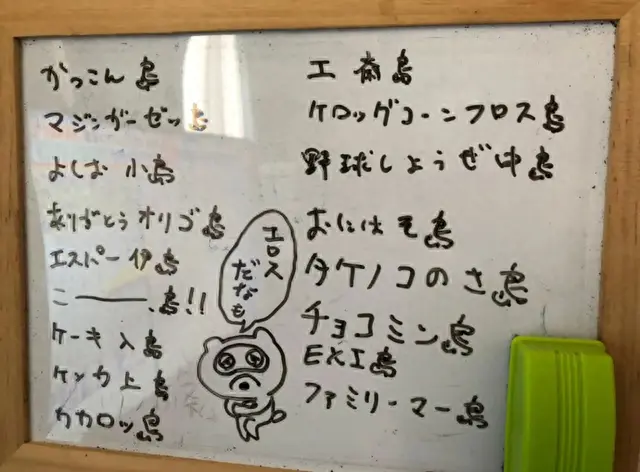 がっこん島
マジンガーゼッ島
よしお小島
ありがとうオリゴ島
エスパー伊島
こ———、島!!
ケーキ入島
ケッカ上島
カカロッ島
エロス
だなも
工 斎島
ケロッグコーンフロス島
野球しようぜ中島
おにはそ島
タケノコのさ島
チョコミン島
EXI島
ファミリーマー島